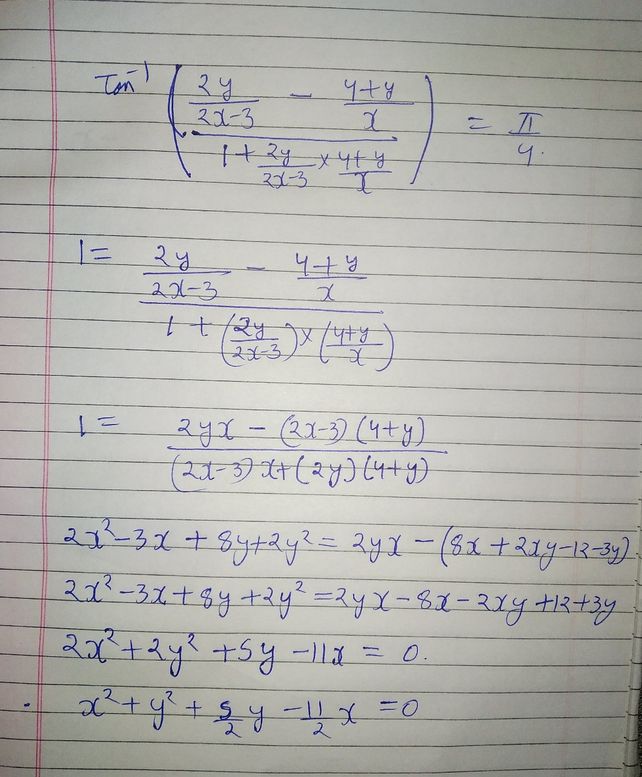 Tan⁻¹ ( (2y/(2x-3) - (4+y)/x) / (1 + 2y/(2x-3) × (4+y)/x) ) = π/4.
1 = (2y/(2x-3) - (4+y)/x) / (1 + (2y/(2x-3)) × ((4+y)/x))
1 = (2yx - (2x-3)(4+y)) / ((2x-3)x + (2y)(4+y))
2x² - 3x + 8y + 2y² = 2yx - (8x + 2xy - 12 - 3y)
2x² - 3x + 8y + 2y² = 2yx - 8x - 2xy + 12 + 3y
2x² + 2y² + 5y - 11x = 0.
. x² + y² + 5/2 y - 11/2 x = 0